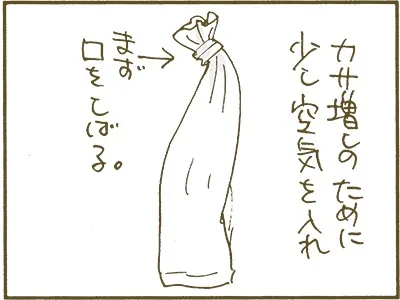 カサ増しのために
少し空気を入れ
まず
口をしばる。